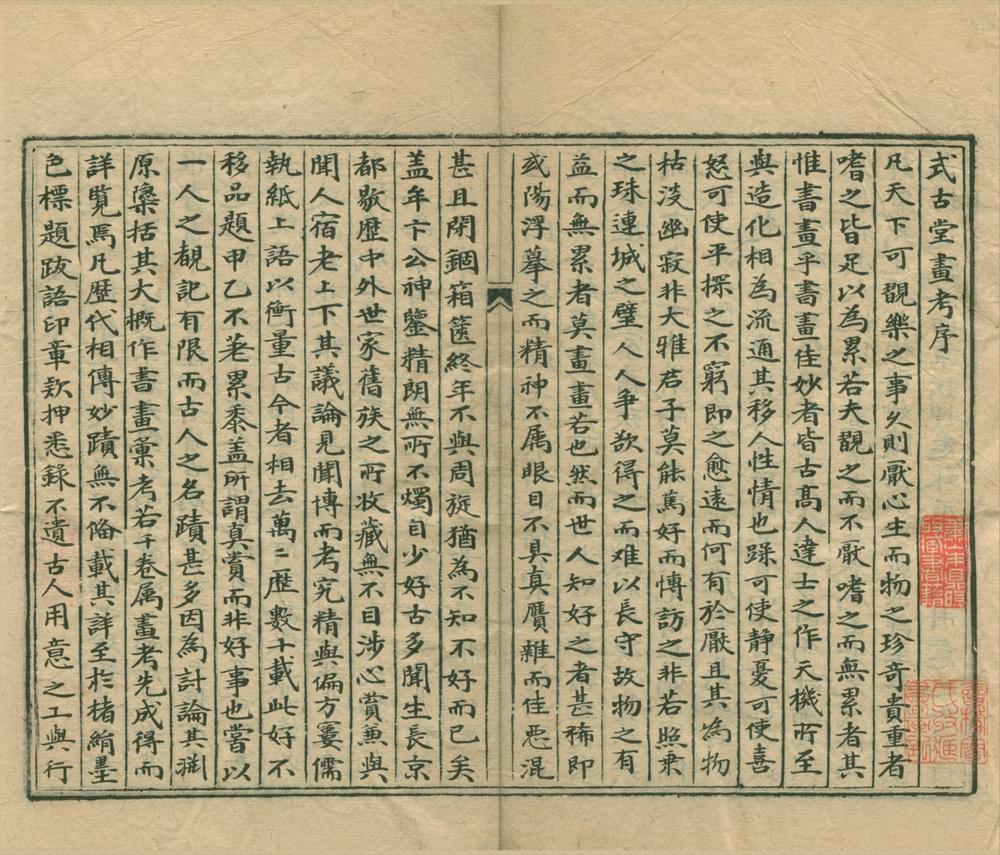 式古堂畫考序
凡天下可翫樂之事久則厭心生而物之珍奇貴重者
嗜之皆足以為累若夫翫之而不厭嗜之而無累者其
惟書畫乎書畫佳妙者皆古高人達士之作天機所至
與造化相為流通其移人性情也躁可使静憂可使喜
怒可使平探之不窮即之愈遠而何有於厭且其為物
枯淡幽寂非大雅君子莫能篤好而博訪之非若照乗
之珠連城之璧人人争欲得之而难以長守故物之有
益而無累者莫畫若也然而世人知好之者甚稀即
或陽浮摹之而精神不属眼目不具真贋雜而佳惡混
甚且閉錮箱篋終年不與周旋猶為不知不好而已矣
盖年卞公神鑒精朗無所不燭自少好古多聞生長京
都敭歷中外世家舊族之所收藏無不目涉心賞兼與
聞人宿老上下其議論見聞博而考究精與偏方窶儒
執紙上語以衡量古今者相去萬二歷數十載此好不
移品題甲乙不差累黍盖所謂真賞而非好事也嘗以
一人之覩記有限而古人之名蹟甚多因為討論其淵
原檃括其大概作書畫彙考若干卷属畫考先成得而
詳覽焉凡歷代相傳妙蹟無不偹載其詳至於楮絹墨
色標題跋語印章欵押悉錄不遺古人用意之工與行